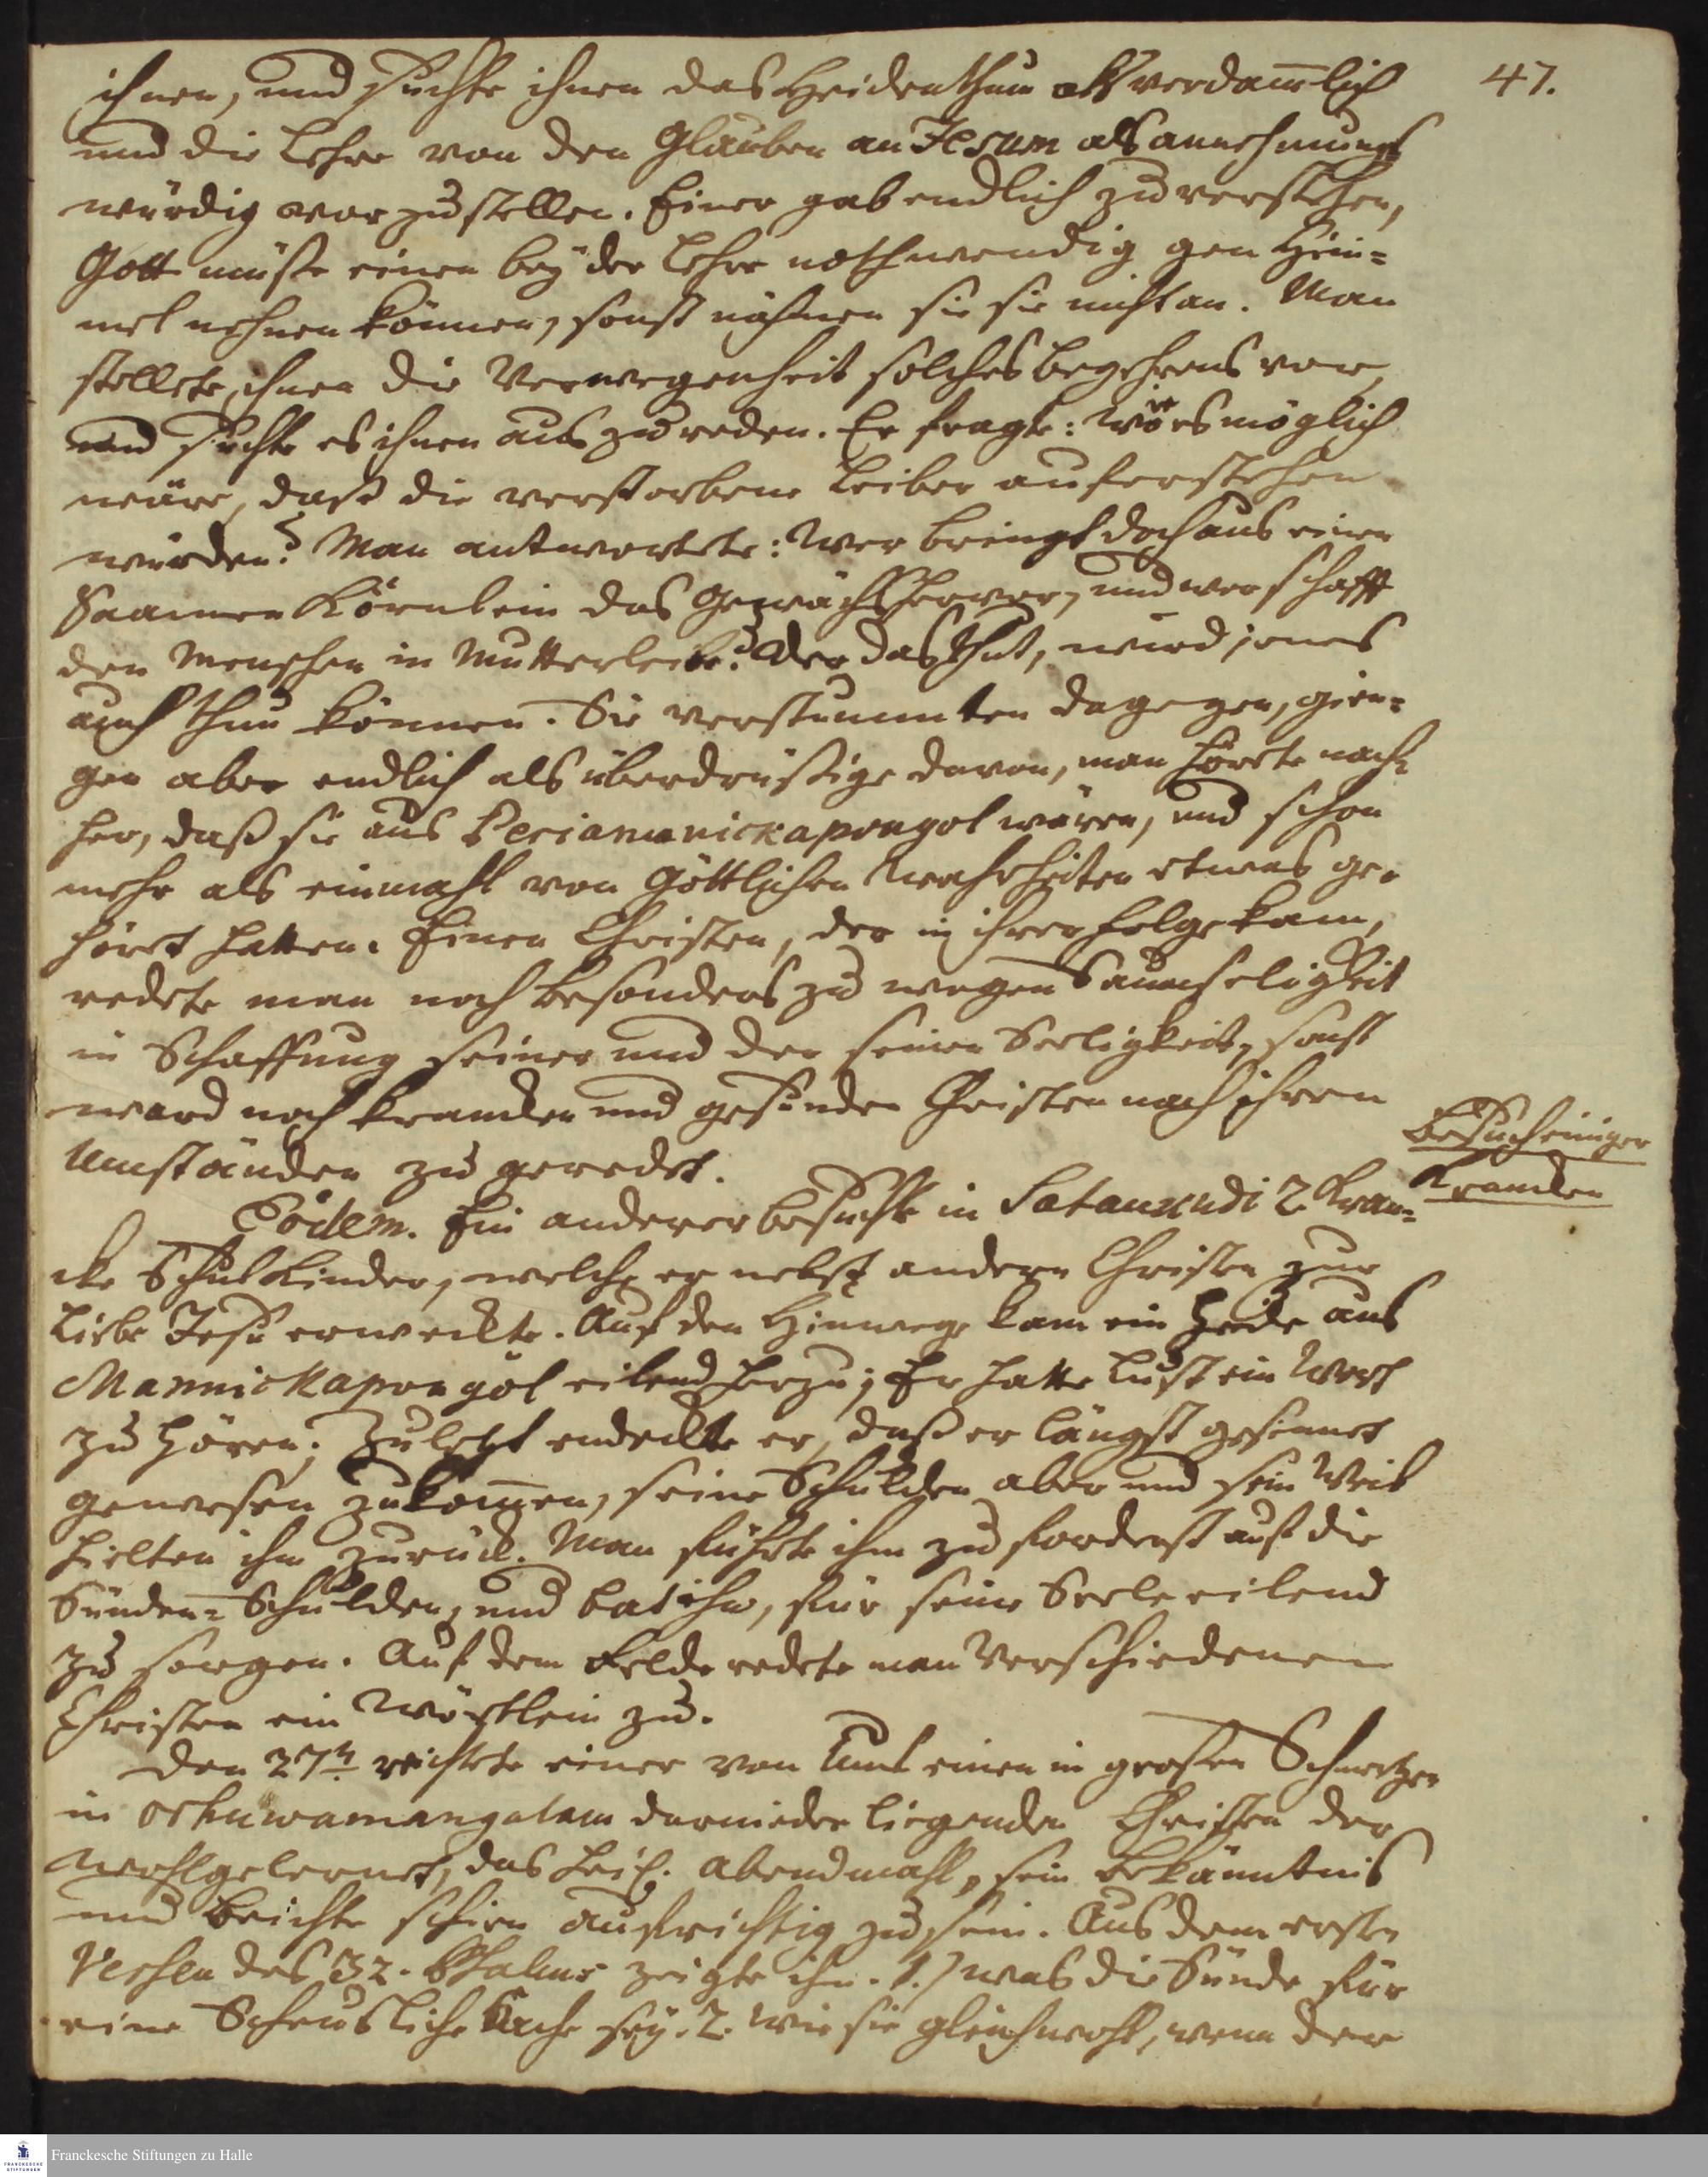 47.
ihnen, und suchte ihnen das Heidenthum als verdam̄lich
und die Lehre von den Glauben an Jesum als annehmungs
würdig vorzustellen. Einer gab endlich zu verstehen,
Gott müste einen bey der Lehre nothwendig gen Him-
mel nehmen können, sonst nähmen sie sie nicht an. Man
stellete ihnen die Verwegenheit solches Begehrens vor,
und suchte es ihnen auszureden. Er fragte: Wie es möglich
wäre, daß die verstorbene Leiber auferstehen
würden? Man antwortete: Wer bringt doch aus einen
Saamen Körnlein das Gewächs hervor, und wer schafft
den Menschen in Mutterleibe? Der das thut, wird jenes
auch thun können. Sie verstummten dagegen, gien-
gen aber endlich als überdrüßige davon, man hörete nach-
her, daß sie aus Periamanickapongol wären, und schon
mehr als einmahl von Göttlichen Wahrheiten etwas ge-
höret hatten. Einen Christen, der in ihrer Folge kam,
redete man noch besonders zu wegen Saumseligkeit
in Schaffung seiner und der seinen Seeligkeit, sonst
ward noch krancken und gesunden Christen nach ihren
Umständen zu geredet.
Besuch einiger
Krancken
Eodem. Ein anderer besuchte in Satankudi 2. Kran-
cke Schul Kinder, welche er nebst andern Christen zur
Liebe Jesu erweckte. Auf den Hinwege kam ein Heide aus
Mannickapongol eilend herzu; Er hatte Lust ein Wort
zu hören; Zuletzt endeckte er, daß er längst gesinnet
gewesen zukom̄en, seine Schulden aber und sein Weib
hielten ihn zurück. Man führte ihm zu forderst auf die
Sünden-Schulden, und bat ihn, für seine Seele eilend
zu sorgen. Auf dem Felde redete man Verschiedenen
Christen ein Wörtlein zu.
Den 27ten reichete einer von Uns einen in großen Schmertzen
in Oshuwamangalam darnieder liegenden Christen der
wohlgelernet, das heil. Abendmahl, sein Bekänntnis
und Beichte schien aufrichtig zu sein. Aus dem ersten
Versen des 32. Psalms zeigte ihm. 1.) was die Sünde für
eine Scheusliche Sache sey. 2. wie sie gleichwohl, wenn der